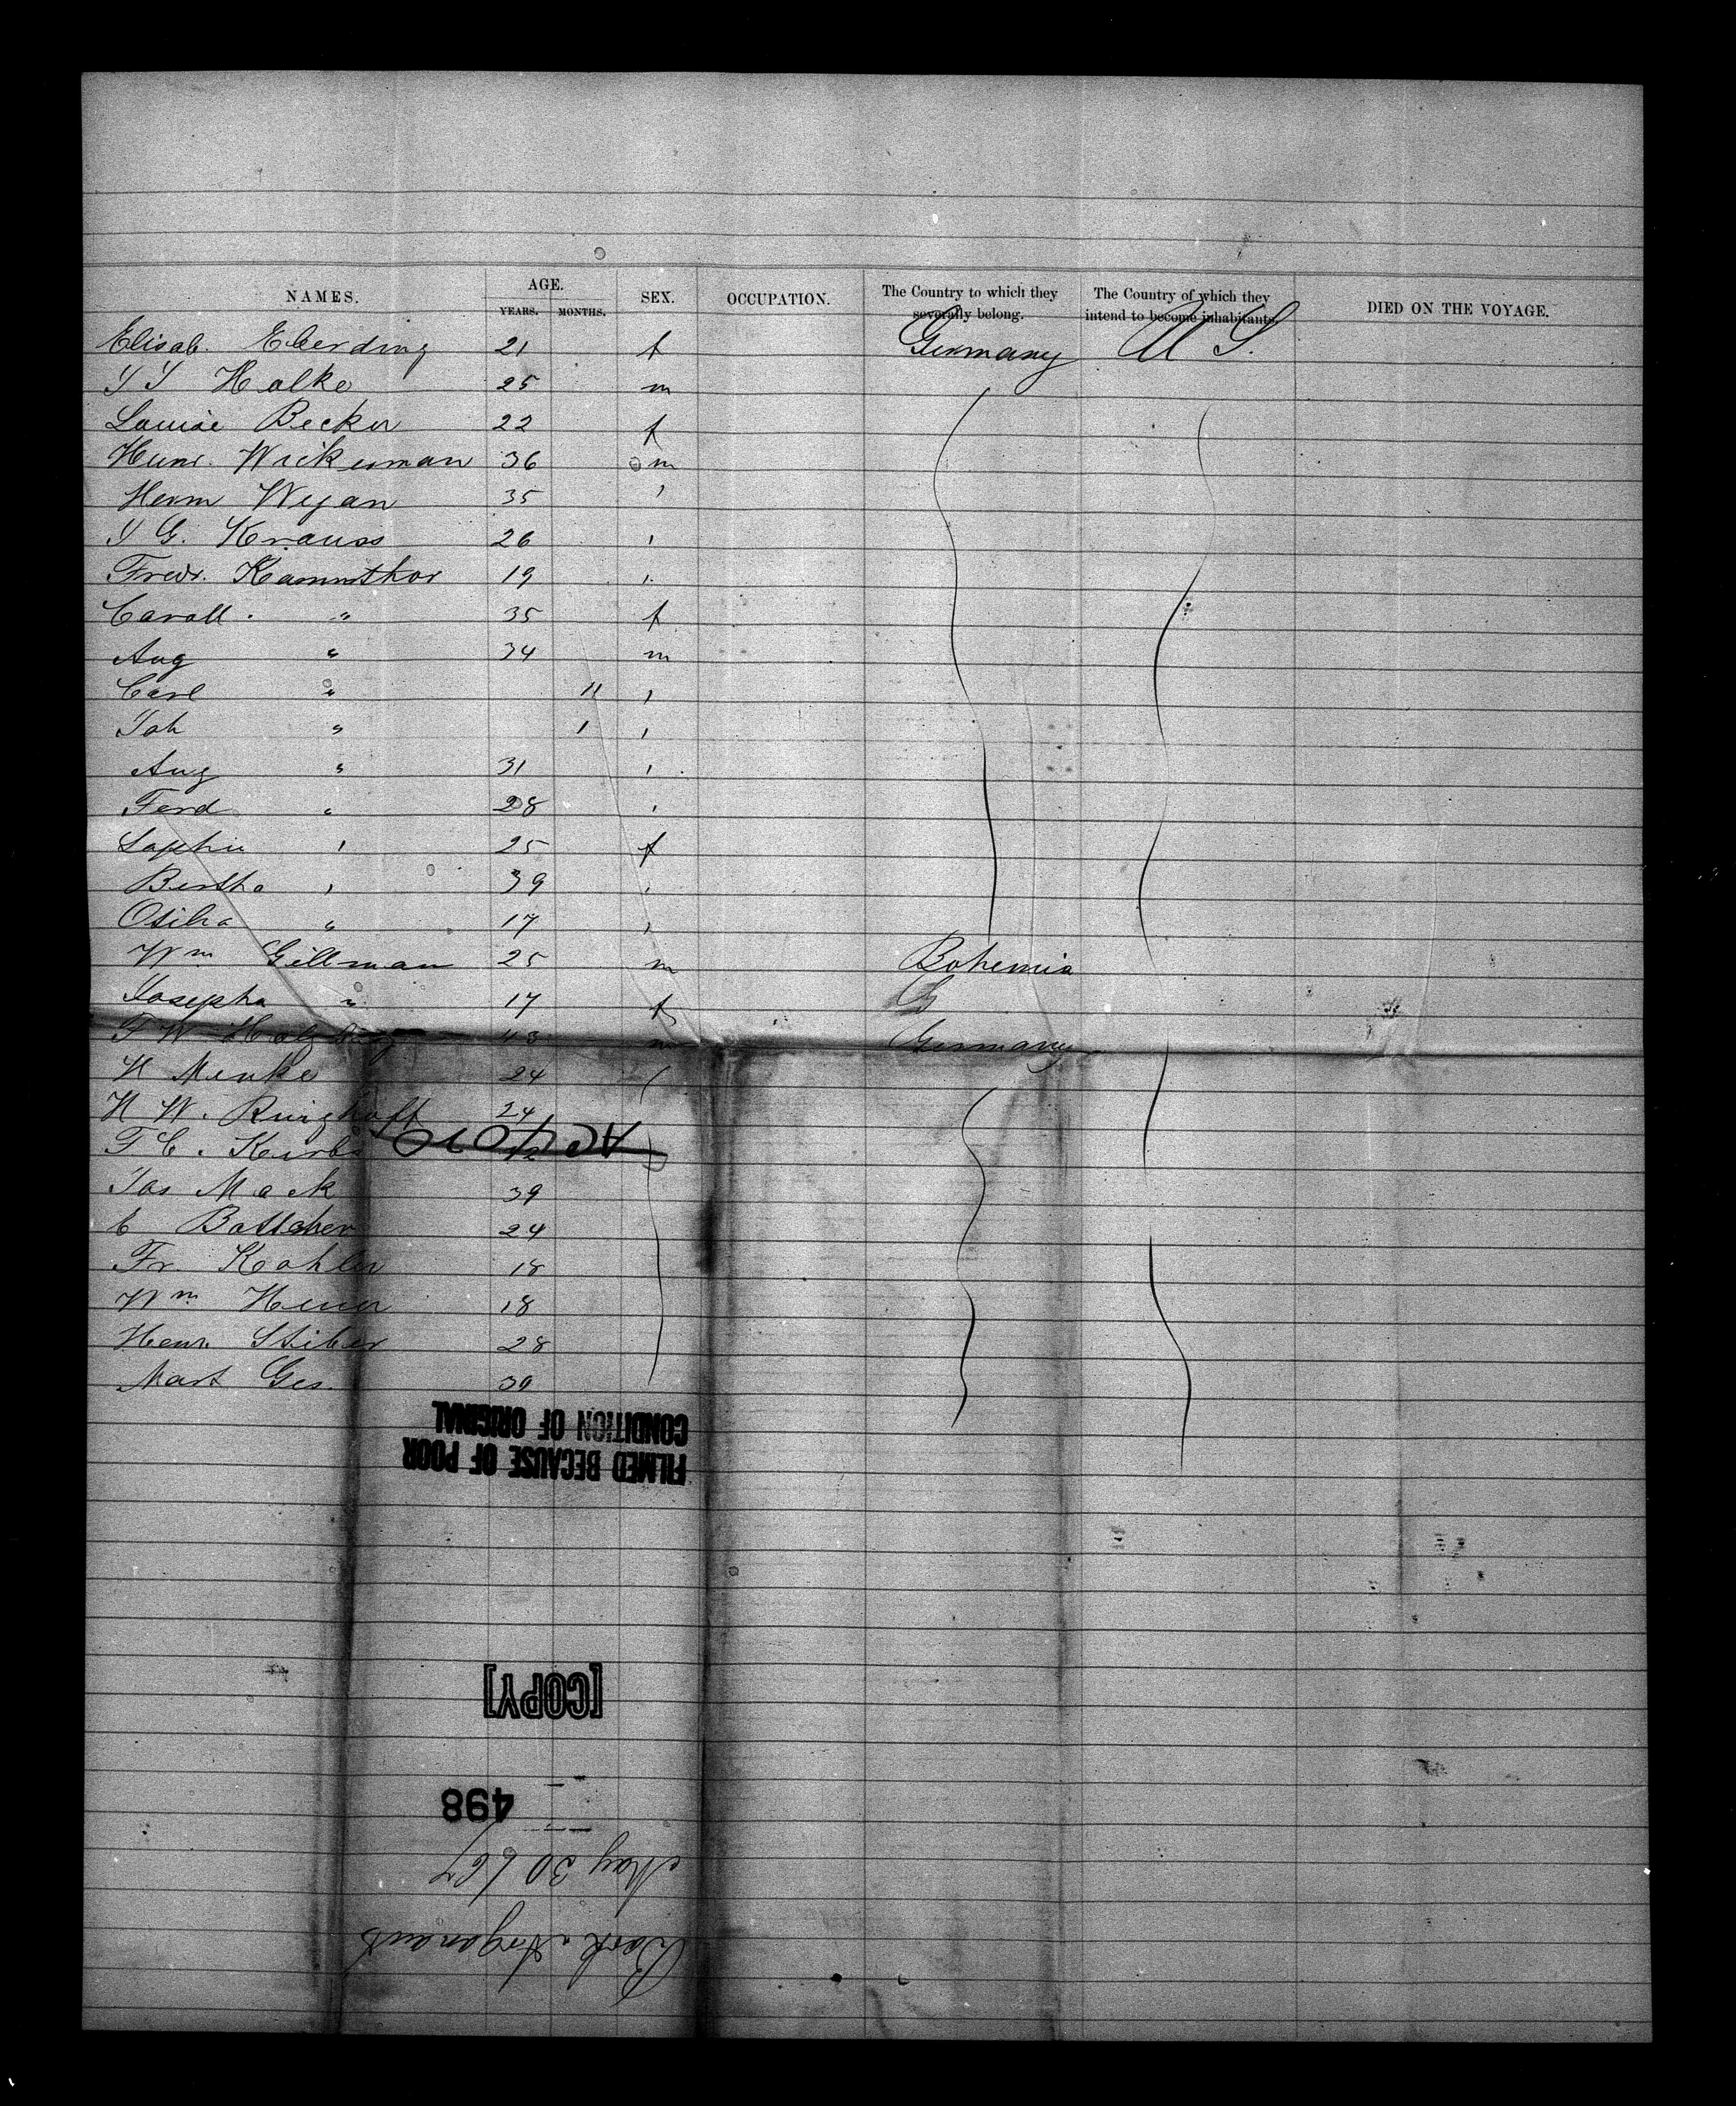 NAMES. AGE. YEARS. MONTHS. SEX. OCCUPATION. The Country to which they severally belong. The Country of which they intend to become inhabitants. DIED ON THE VOYAGE.
Elisab. Eberding 21 f Germany U S.
Halke 25 m
Louise Becker 22 f
36 m
Herm Wegan 35 '
G. Krauss 26 '
Fredr. Kammthor 19 '
" 35 f
Aug " 34 m
Carl " 11 '
Joh " 1 '
Aug " 31 '
Ferd " 28 '
Sophie ' 25 f
Bertha ' 39 '
" 17 '
Wm Gillman 25 m Bohemia
Josepha " 17 f
F W 43 m Germany
H Menke 24
H W. Ringhoff 24
F C.
Jos Mack 39
C Bottcher 24
Fr. Kohler 18
Wm Heuer 18
Henr. Stiber 28
Mart Ges. 30
FILMED BECAUSE OF POOR
CONDITION OF ORIGINAL
[COPY]
498
May 30/67
Bark Argonaut